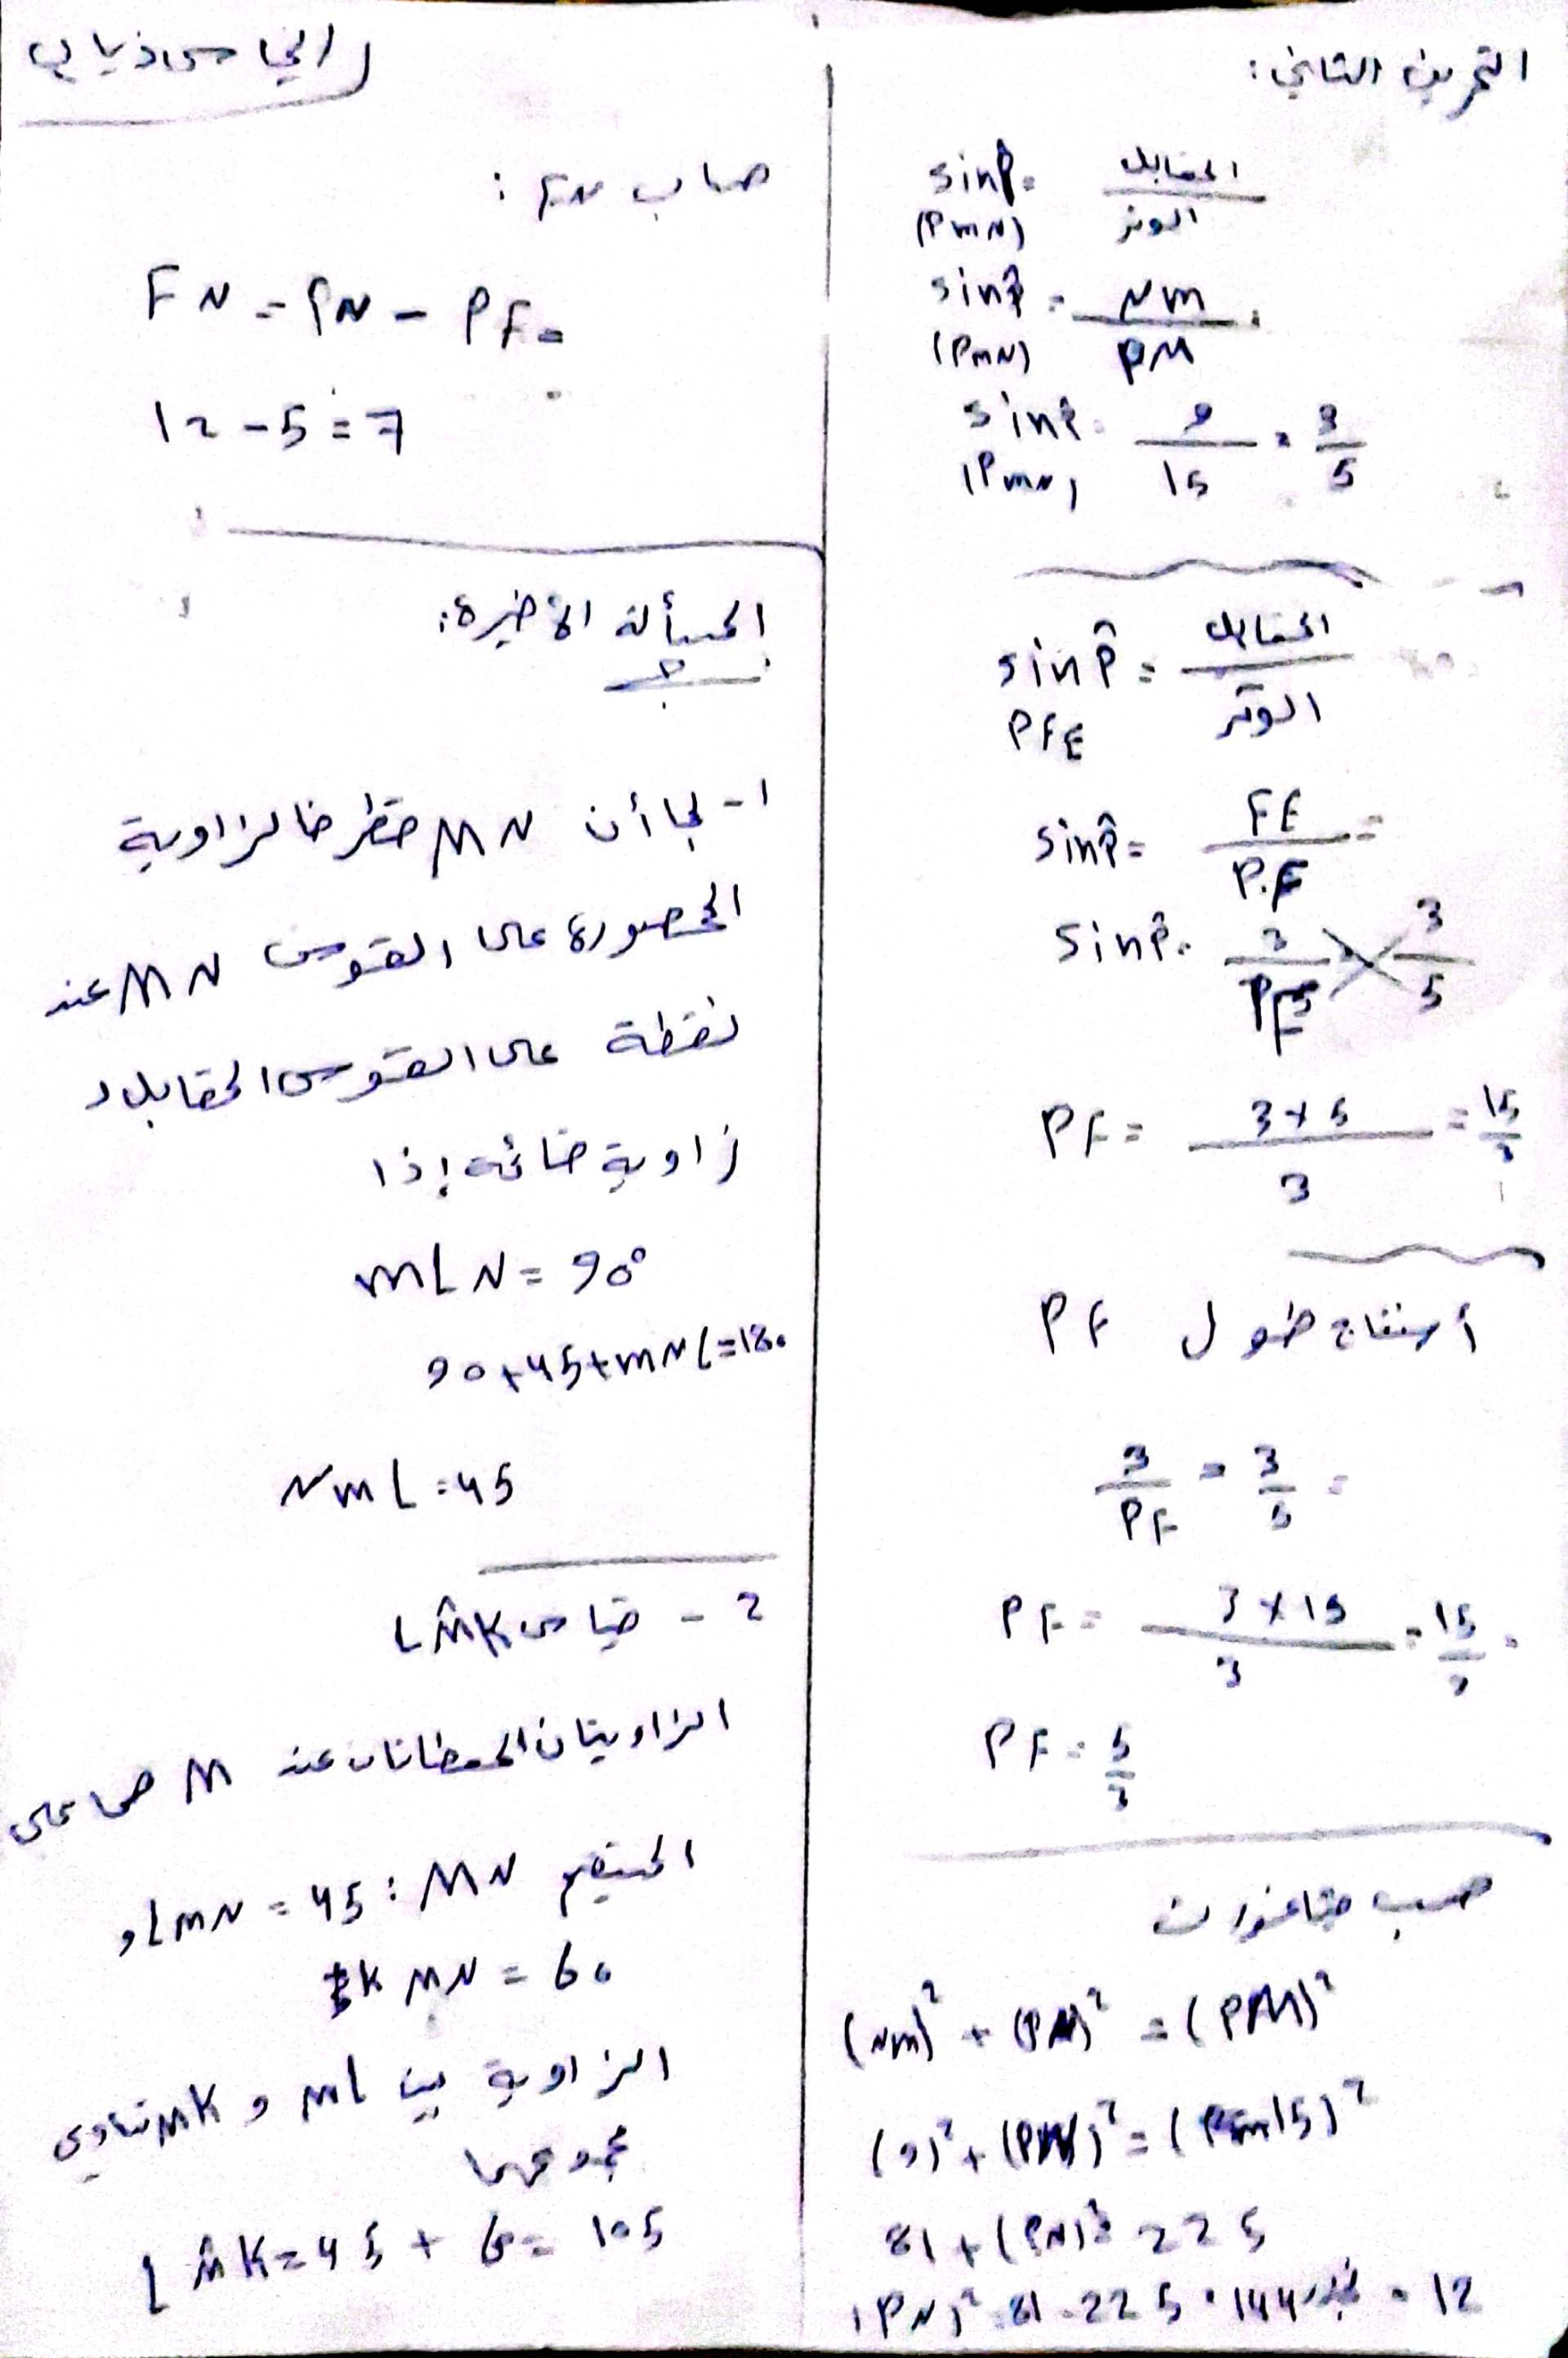 التمرين الثاني:
sin P̂ = المقابل / الوتر
(PMN)
sin P̂ = NM / PM
(PMN)
sin P̂ = 9 / 15 = 3 / 5
(PMN)
sin P̂ = المقابل / الوتر
PFE
sin P̂ = FE / P.F =
sin P̂ = 3 / PF = 3 / 5
PF = 3 × 5 / 3 = 15 / 3
أستنتاج طول PF
3 / PF = 3 / 5 =
PF = 3 × 15 / 3 = 15 / 3 =
PF = 5 / 3
حسب فيتاغورث
(NM)² + (PN)² = (PM)²
(9)² + (PN)² = (15)²
81 + (PN)² = 225
(PN)² = 81 - 225 = 144 نجذر = 12
الياس ذياب
حساب FN :
FN = PN - PF =
12 - 5 = 7
المسألة الأخيرة:
1- بما أن MN قطر فالزاوية
المحصورة على القوس MN عند
نقطة على القوس المقابل
زاوية قائمة إذا
MLN = 90°
90 + 45 + MNL = 180
NML = 45
2 - قياس LM̂K
الزاويتان المعطاتان عند M هما على
المستقيم MN : LMN = 45 و
KMN = 60
الزاوية بين ML و MK تساوي
مجموعهما
LM̂K = 45 + 60 = 105